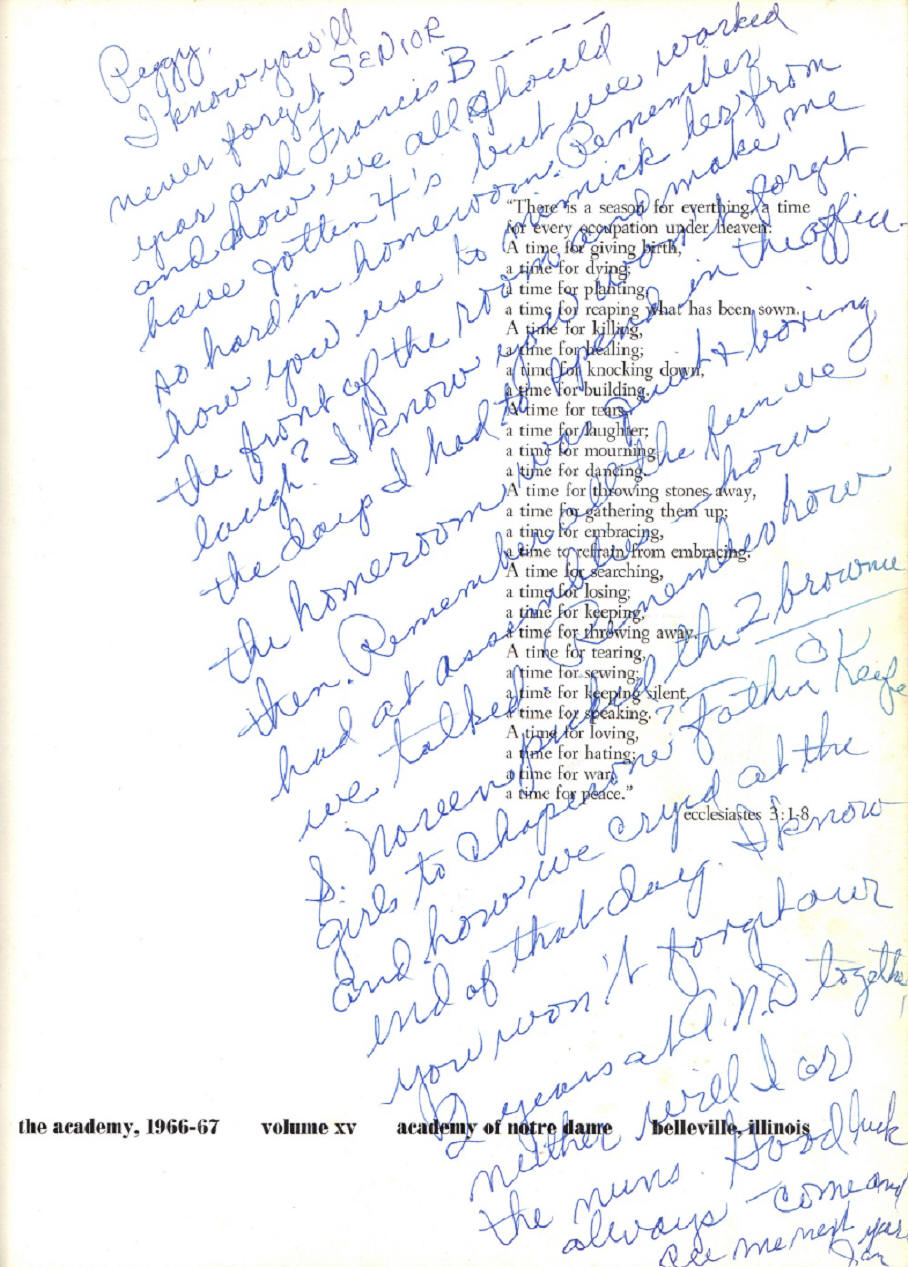 Peggy,
I know you'll
never forget SENIOR
year and Francis B – – – –
and how we all should
have gotten 4's but we worked
so hard in homeroom. Remember
how you use to mimick her from
the front of the room and make me
laugh? I know you won't forget
the days I had to spend in the office
the homeroom was quiet & boring
then. Remember all the fun we
had at assemblies – how
we talked. Remember how
S. Noreen picked the 2 brownie
girls to chaperone Father Keefe?
and how we cryed at the
end of that day. I know
you won't forget our
2 years at A.N.D together,
neither will I or
the nuns. Good luck
always – come and
see me next year
Jan
"There is a season for everthing, a time
for every occupation under heaven:
A time for giving birth,
a time for dying;
a time for planting,
a time for reaping what has been sown.
A time for killing,
a time for healing;
a time for knocking down,
a time for building.
A time for tears,
a time for laughter;
a time for mourning,
a time for dancing.
A time for throwing stones away,
a time for gathering them up;
a time for embracing,
a time to refrain from embracing.
A time for searching,
a time for losing;
a time for keeping,
a time for throwing away.
A time for tearing,
a time for sewing;
a time for keeping silent,
a time for speaking.
A time for loving,
a time for hating;
a time for war,
a time for peace."
ecclesiastes 3:1-8
the academy, 1966-67 volume xv academy of notre dame belleville, illinois